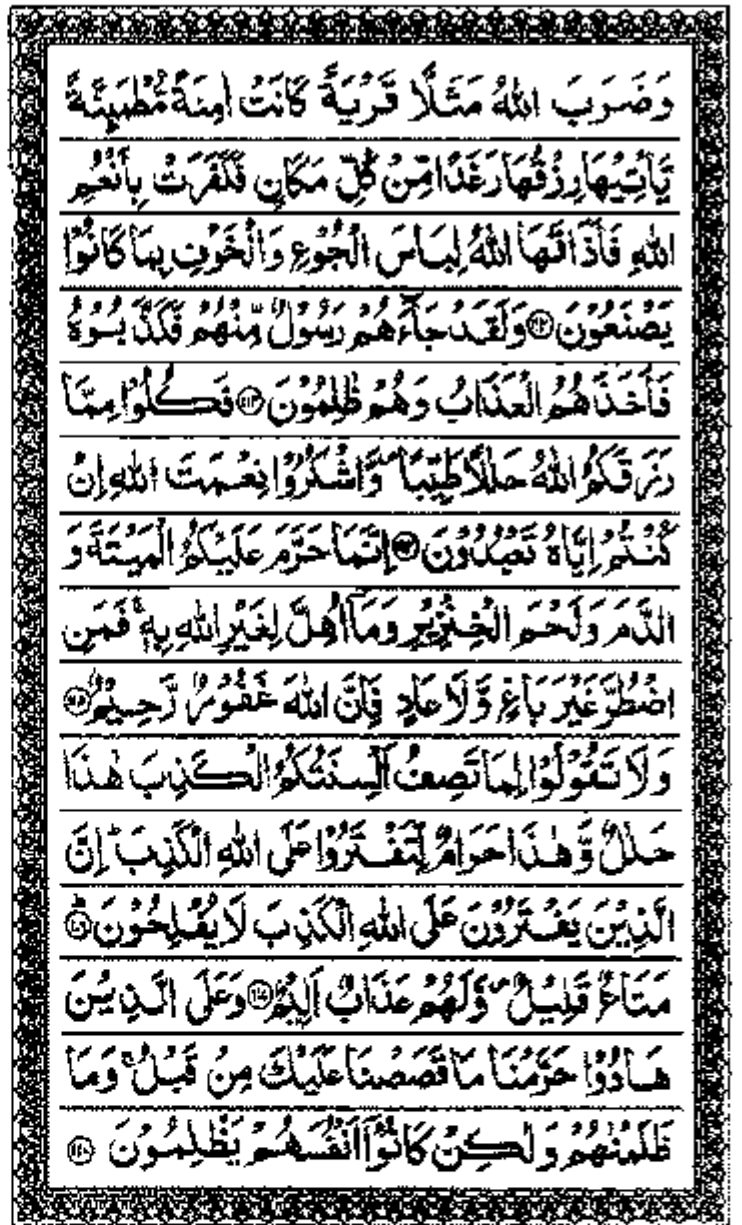 وَضَرَبَ اللهُ مَثَلًا قَرْيَةً كَانَتْ اٰمِنَةً مُّطْمَىِٕنَّةً
يَّاْتِيْهَا رِزْقُهَا رَغَدًا مِّنْ كُلِّ مَكَانٍ فَكَفَرَتْ بِاَنْعُمِ
اللهِ فَاَذَاقَهَا اللهُ لِبَاسَ الْجُوْعِ وَالْخَوْفِ بِمَا كَانُوْا
يَصْنَعُوْنَ ﴿۱۱۲﴾ وَلَقَدْ جَآءَهُمْ رَسُوْلٌ مِّنْهُمْ فَكَذَّبُوْهُ
فَاَخَذَهُمُ الْعَذَابُ وَهُمْ ظٰلِمُوْنَ ﴿۱۱۳﴾ فَكُلُوْا مِمَّا
رَزَقَكُمُ اللهُ حَلٰلًا طَيِّبًا ۪ وَّاشْكُرُوْا نِعْمَتَ اللهِ اِنْ
كُنْتُمْ اِيَّاهُ تَعْبُدُوْنَ ﴿۱۱۴﴾ اِنَّمَا حَرَّمَ عَلَيْكُمُ الْمَيْتَةَ وَ
الدَّمَ وَلَحْمَ الْخِنْزِيْرِ وَمَاۤ اُهِلَّ لِغَيْرِ اللهِ بِهٖ ۚ فَمَنِ
اضْطُرَّ غَيْرَ بَاغٍ وَّلَا عَادٍ فَاِنَّ اللهَ غَفُوْرٌ رَّحِيْمٌ ﴿۱۱۵﴾
وَلَا تَقُوْلُوْا لِمَا تَصِفُ اَلْسِنَتُكُمُ الْكَذِبَ هٰذَا
حَلٰلٌ وَّهٰذَا حَرَامٌ لِّتَفْتَرُوْا عَلَى اللهِ الْكَذِبَ ؕ اِنَّ
الَّذِيْنَ يَفْتَرُوْنَ عَلَى اللهِ الْكَذِبَ لَا يُفْلِحُوْنَ ؕ﴿۱۱۶﴾
مَتَاعٌ قَلِيْلٌ ۪ وَّلَهُمْ عَذَابٌ اَلِيْمٌ ﴿۱۱۷﴾ وَعَلَى الَّذِيْنَ
هَادُوْا حَرَّمْنَا مَا قَصَصْنَا عَلَيْكَ مِنْ قَبْلُ ۚ وَمَا
ظَلَمْنٰهُمْ وَلٰكِنْ كَانُوْۤا اَنْفُسَهُمْ يَظْلِمُوْنَ ﴿۱۱۸﴾